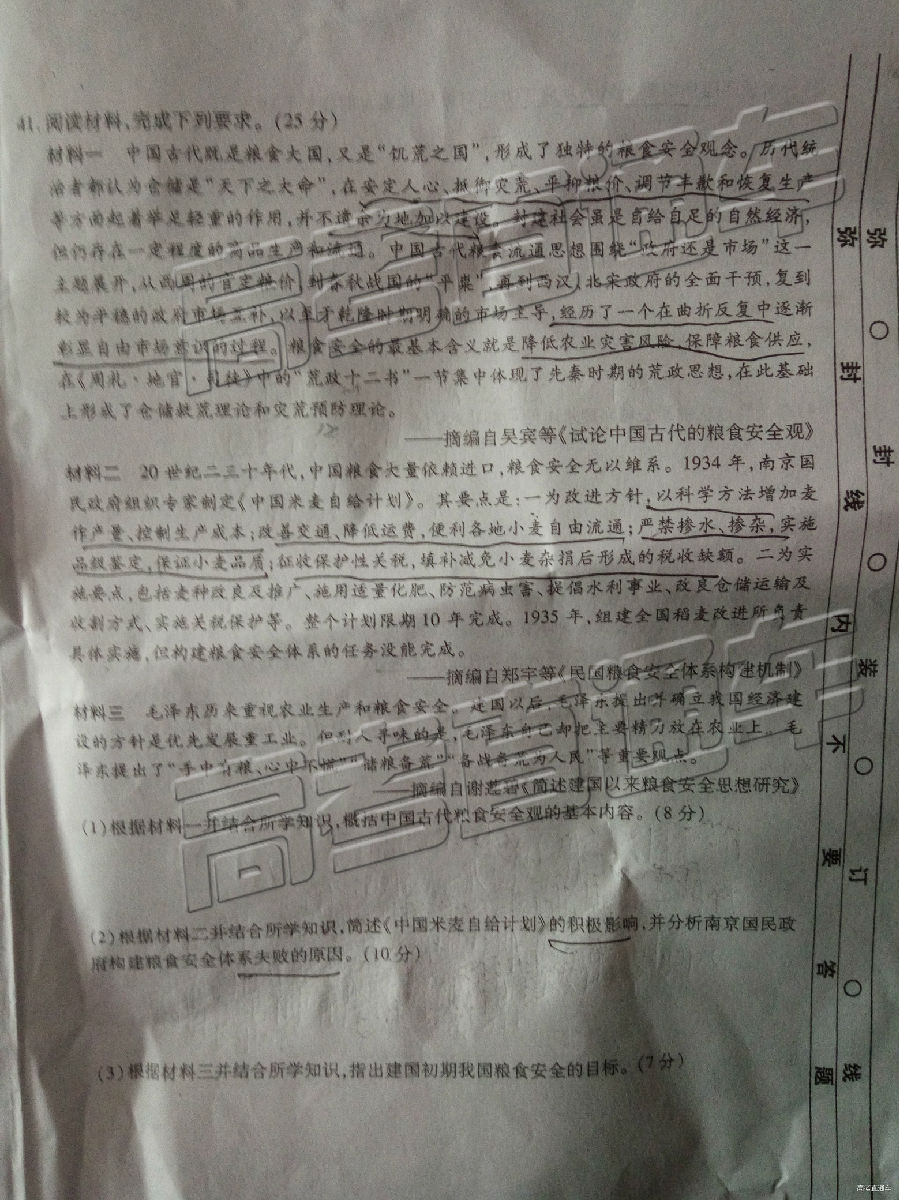 41.阅读材料,完成下列要求。(25分)
材料一 中国古代既是粮食大国,又是“饥荒之国”,形成了独特的粮食安全观念。历代统
治者都认为仓储是“天下之大命”,在安定人心、抵御灾荒、平抑粮价、调节丰歉和恢复生产
等方面起着举足轻重的作用,并不遗余力地加以建设。封建社会虽是自给自足的自然经济,
但仍存在一定程度的商品生产和流通。中国古代粮食流通思想围绕“政府还是市场”这一
主题展开,从西周的官定粮价,到春秋战国的“平粜”,再到西汉、北宋政府的全面干预,复到
较为平稳的政府市场互补,以至于乾隆时期明确的市场主导,经历了一个在曲折反复中逐渐
彰显自由市场意识的过程。粮食安全的最基本含义就是降低农业灾害风险,保障粮食供应,
在《周礼·地官·司徒》中的“荒政十二书”一节集中体现了先秦时期的荒政思想,在此基础
上形成了仓储救荒理论和灾荒预防理论。
12
——摘编自吴宾等《试论中国古代的粮食安全观》
材料二 20世纪二三十年代,中国粮食大量依赖进口,粮食安全无以维系。1934年,南京国
民政府组织专家制定《中国米麦自给计划》。其要点是:一为改进方针,以科学方法增加麦
作产量、控制生产成本;改善交通、降低运费,便利各地小麦自由流通;严禁掺水、掺杂,实施
品级鉴定,保证小麦品质;征收保护性关税,填补减免小麦杂捐后形成的税收缺额。二为实
施要点,包括麦种改良及推广、施用适量化肥、防范病虫害、提倡水利事业、改良仓储运输及
收割方式、实施关税保护等。整个计划限期10年完成。1935年,组建全国稻麦改进所负责
具体实施,但构建粮食安全体系的任务没能完成。
——摘编自郑宇等《民国粮食安全体系构建机制》
材料三 毛泽东历来重视农业生产和粮食安全。建国以后,毛泽东提出并确立我国经济建
设的方针是优先发展重工业。但耐人寻味的是,毛泽东自己却把主要精力放在农业上。毛
泽东提出了“手中有粮、心中不慌”“储粮备荒”“备战备荒为人民”等重要观点。
——摘编自谢《简述建国以来粮食安全思想研究》
(1)根据材料一并结合所学知识,概括中国古代粮食安全观的基本内容。(8分)
(2)根据材料二并结合所学知识,简述《中国米麦自给计划》的积极影响,并分析南京国民政
府构建粮食安全体系失败的原因。(10分)
(3)根据材料三并结合所学知识,指出建国初期我国粮食安全的目标。(7分)
弥 封 线 内 不 要 答 题
弥 ○ 封 ○ 装 ○ 订 ○ 线
高考直通车
高考直通车
高考直通车